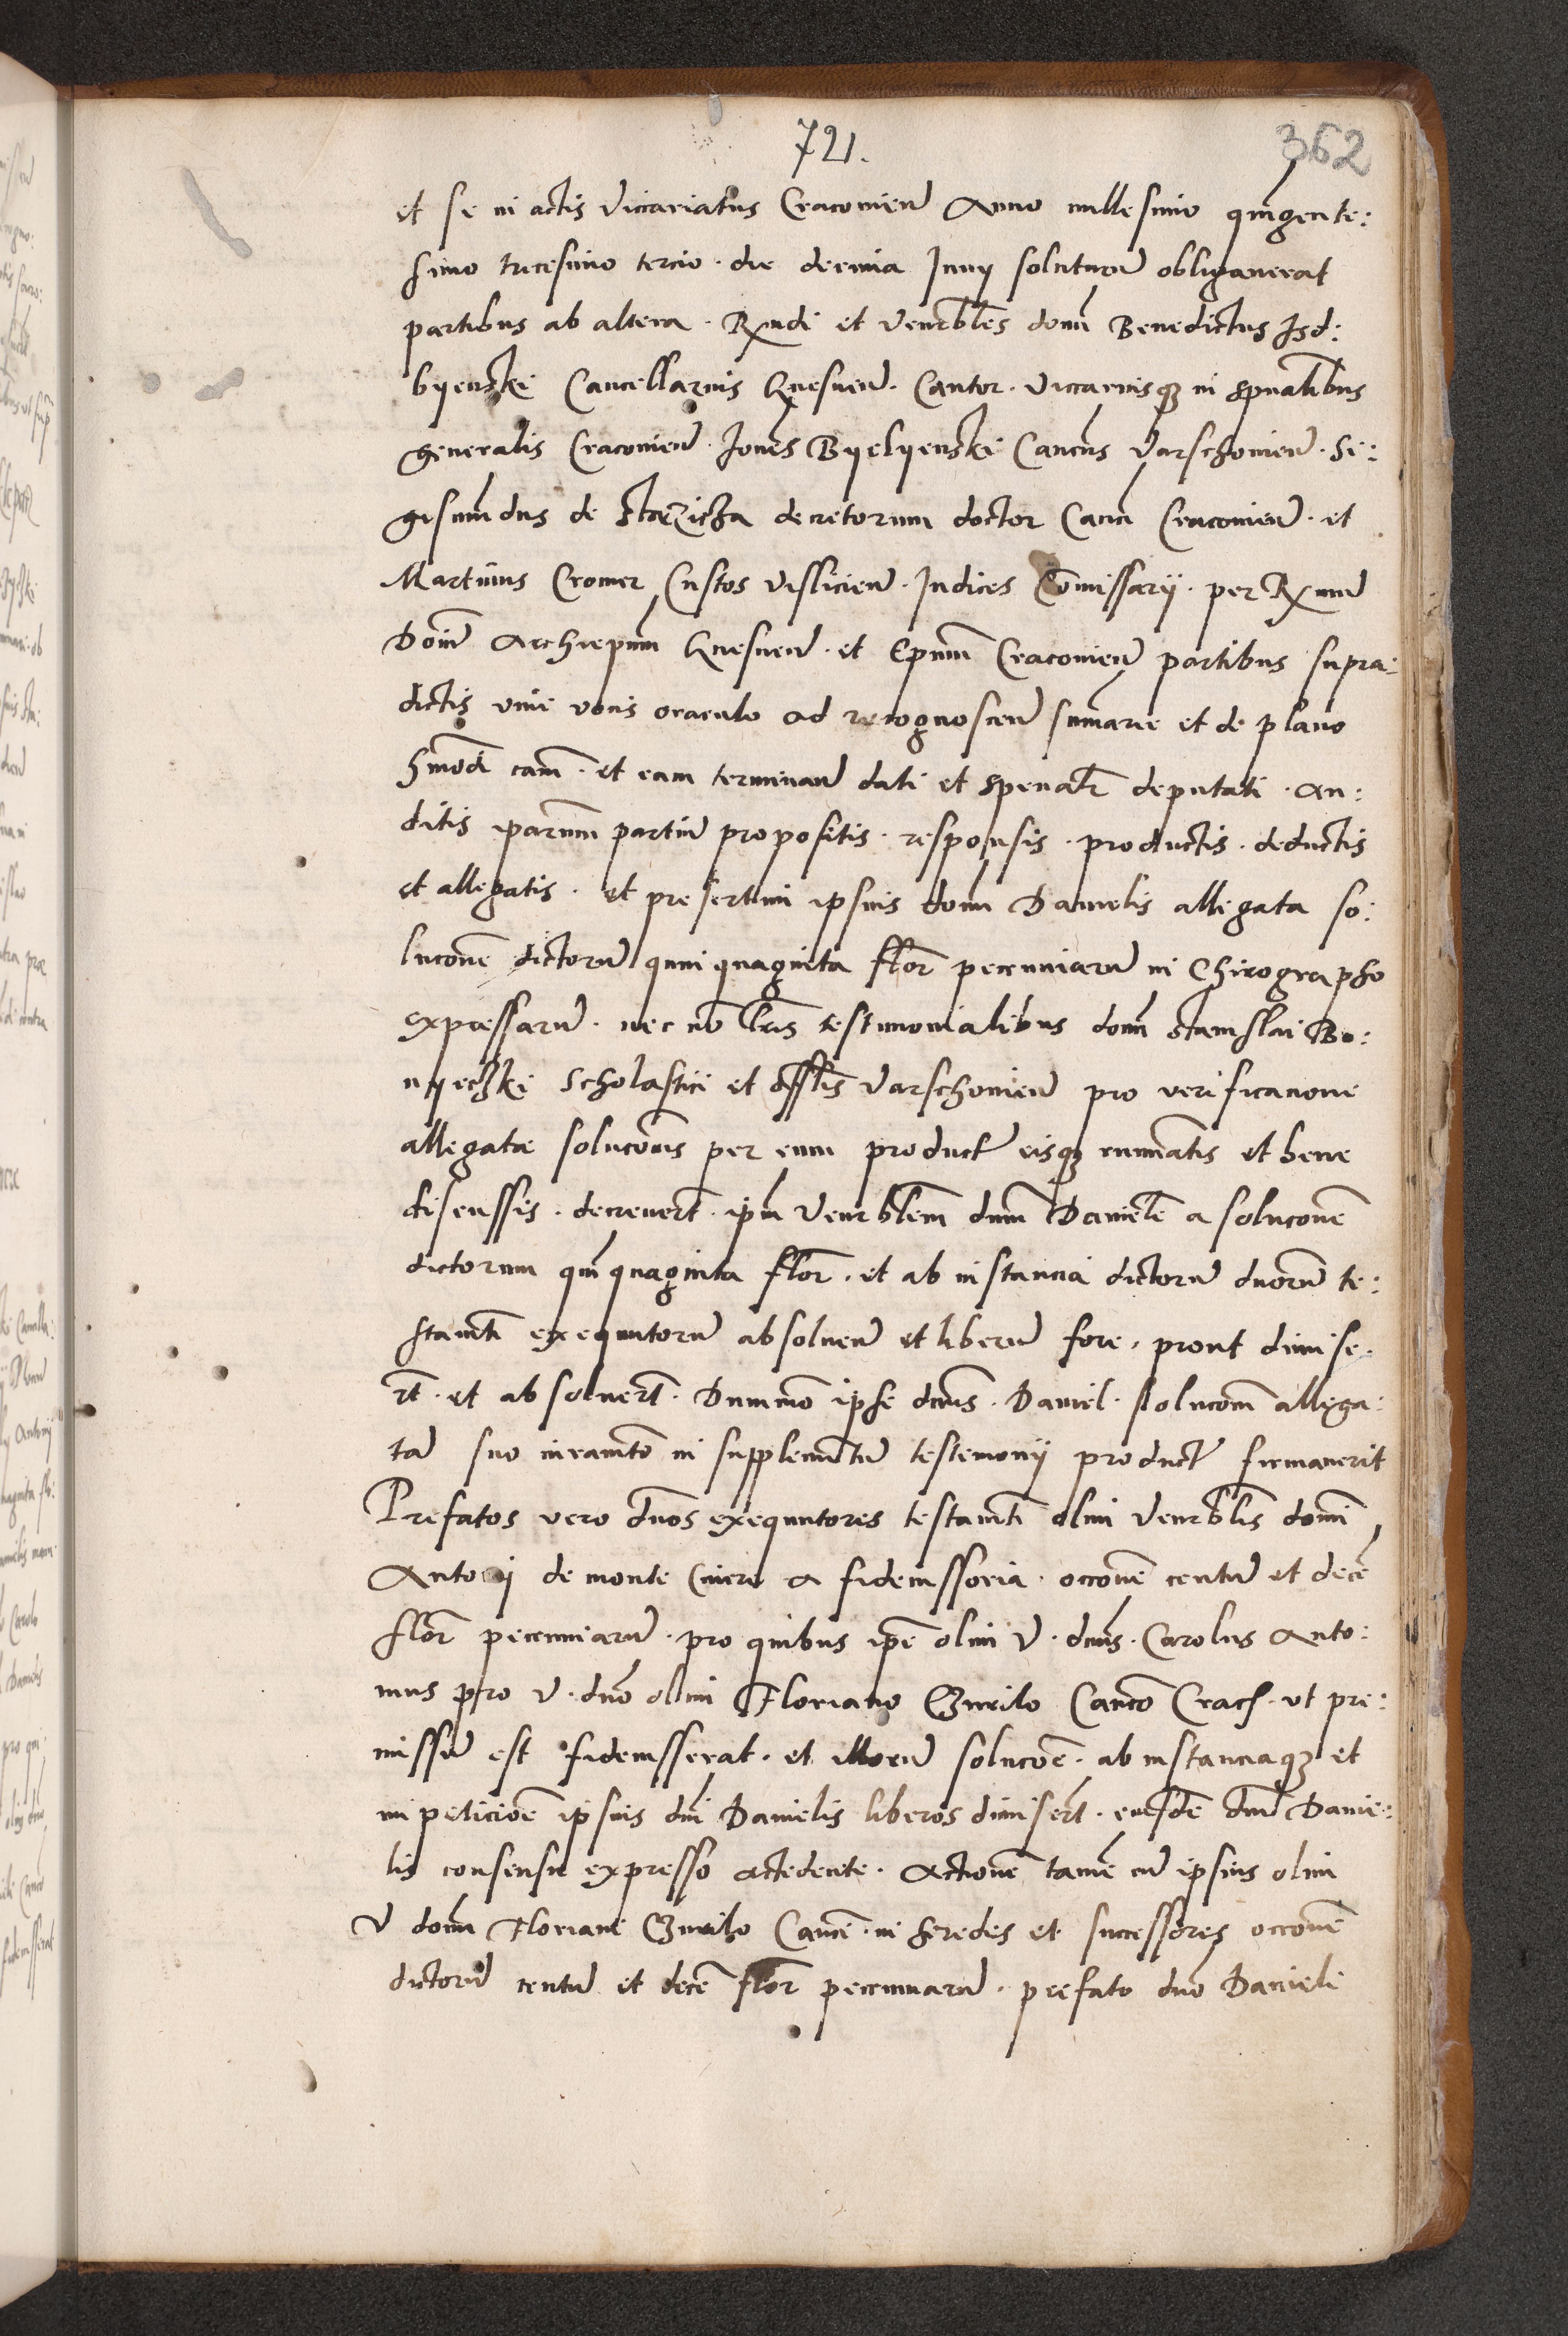 721.
362
et se in actis vicariatus Cracovien̄ Anno millesimo quingente:
simo tricesimo tercio · die decima Junij soluturū obligauerat
partibus ab altera · Rndi et venerbles domī Benedictus Jsd:
byenski Cancellarius Gnesnen̄ · Cantor · vicariusqȝ in spūalibus
generalis Cracovien̄ · Joan̄es Byelyenski Canc̄us Varschovien̄ · Si:
gismūdus de Stczicza decretorum doctor Can̄ Cracovien̄ · et
Martinus Cromer Custos vislicien̄ · Iudices Com̄issarij · per Rx̄mū
Doīm Archiepūm Gnesnen̄ · et Epūm Cracovien̄ partibus supra:
dictis viue vocis oraculo ad recognoscen̄ sum̄arie et de plano
hm̄oi cām · et eam terminan̄ dati et sp̄enatr̄ deputati · au:
ditis iparum partiū propositis · responsis · productis · deductis
et allegatis · et presertim ipsius domī Danielis allegata so:
lucōne dictorū quinquaginta flor̄ pecuniarū in Chirographo
expressarū · nec nō lr̄is testimonialibus domī Stanislai Bo:
nyecski scholastici et offl̄is Varschovien̄ pro verificacione
allegatae solucōnis per eum product̄ eisqȝ ruminatis et bene
discussis · decreuer̄t · ip̄m venerblem dn̄m Danielē a solucōne
dictorum quinquaginta flor̄ · et ab instancia dictorū duorū te:
stamēti exequutorū absoluen̄ et liberū fore · prout dimise·
r̄t · et absoluer̄t · Dummō ipse dn̄us · Daniel · solucōm allega:
tā suo iuramēto in supplemētū testimonij product̄ firmauerit
Prefatos vero dn̄os exequutores testamēti olim venerblis domī
Antonij de monte Cinere a fideiussoria · occōne centū et decē
flor̄ pecuniarū · pro quibus ip̄e olim v · dn̄us · Carolus Anto:
nius pro v · dn̄o olim Floriano Gurilo Can̄co Crac̄ · ut pre:
missū est fideiusserat · et illorū solucōe · ab instanciaqȝ et
impeticiōe ipsius dn̄i Danielis liberos dimiser̄t · eiusdē dn̄i Danie:
lis consensu expresso accedente · Actionē tamē cū ipsius olim
v domī Floriani Gurilo Canc̄i · in heredes et successores occōne
dictorū centū et decē flor̄ pecuniarū · prefato dn̄o Danieli